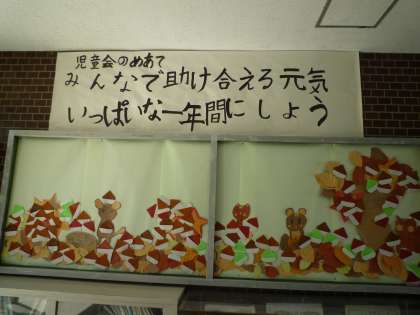 児童会のめあて
みんなで助け合える元気
いっぱいな一年間にしよう